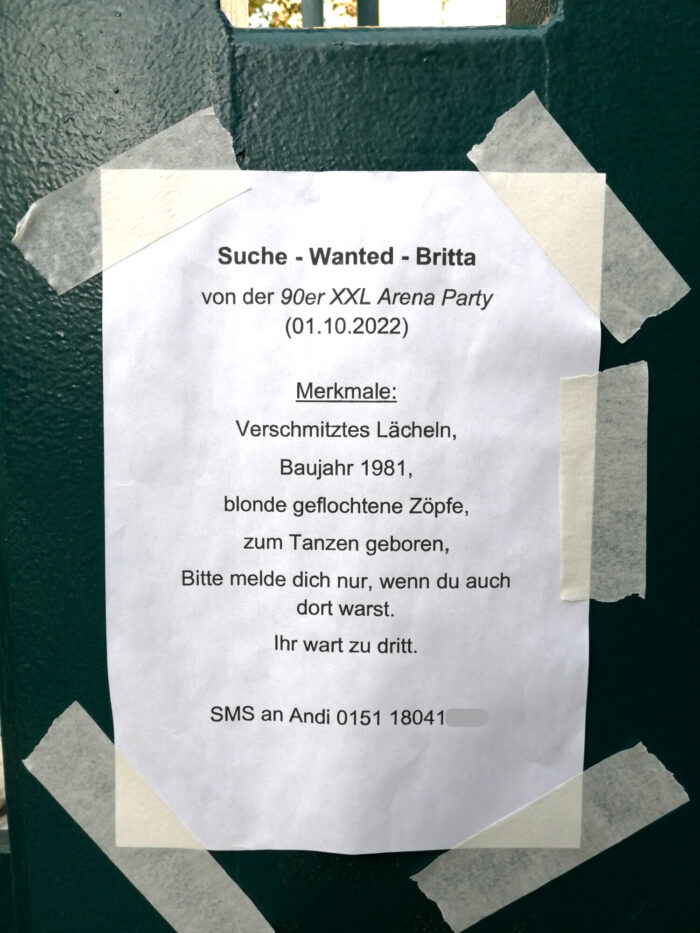 Suche - Wanted - Britta
von der 90er XXL Arena Party
(01.10.2022)
Merkmale:
Verschmitztes Lächeln,
Baujahr 1981,
blonde geflochtene Zöpfe,
zum Tanzen geboren,
Bitte melde dich nur, wenn du auch
dort warst.
Ihr wart zu dritt.
SMS an Andi 0151 18041